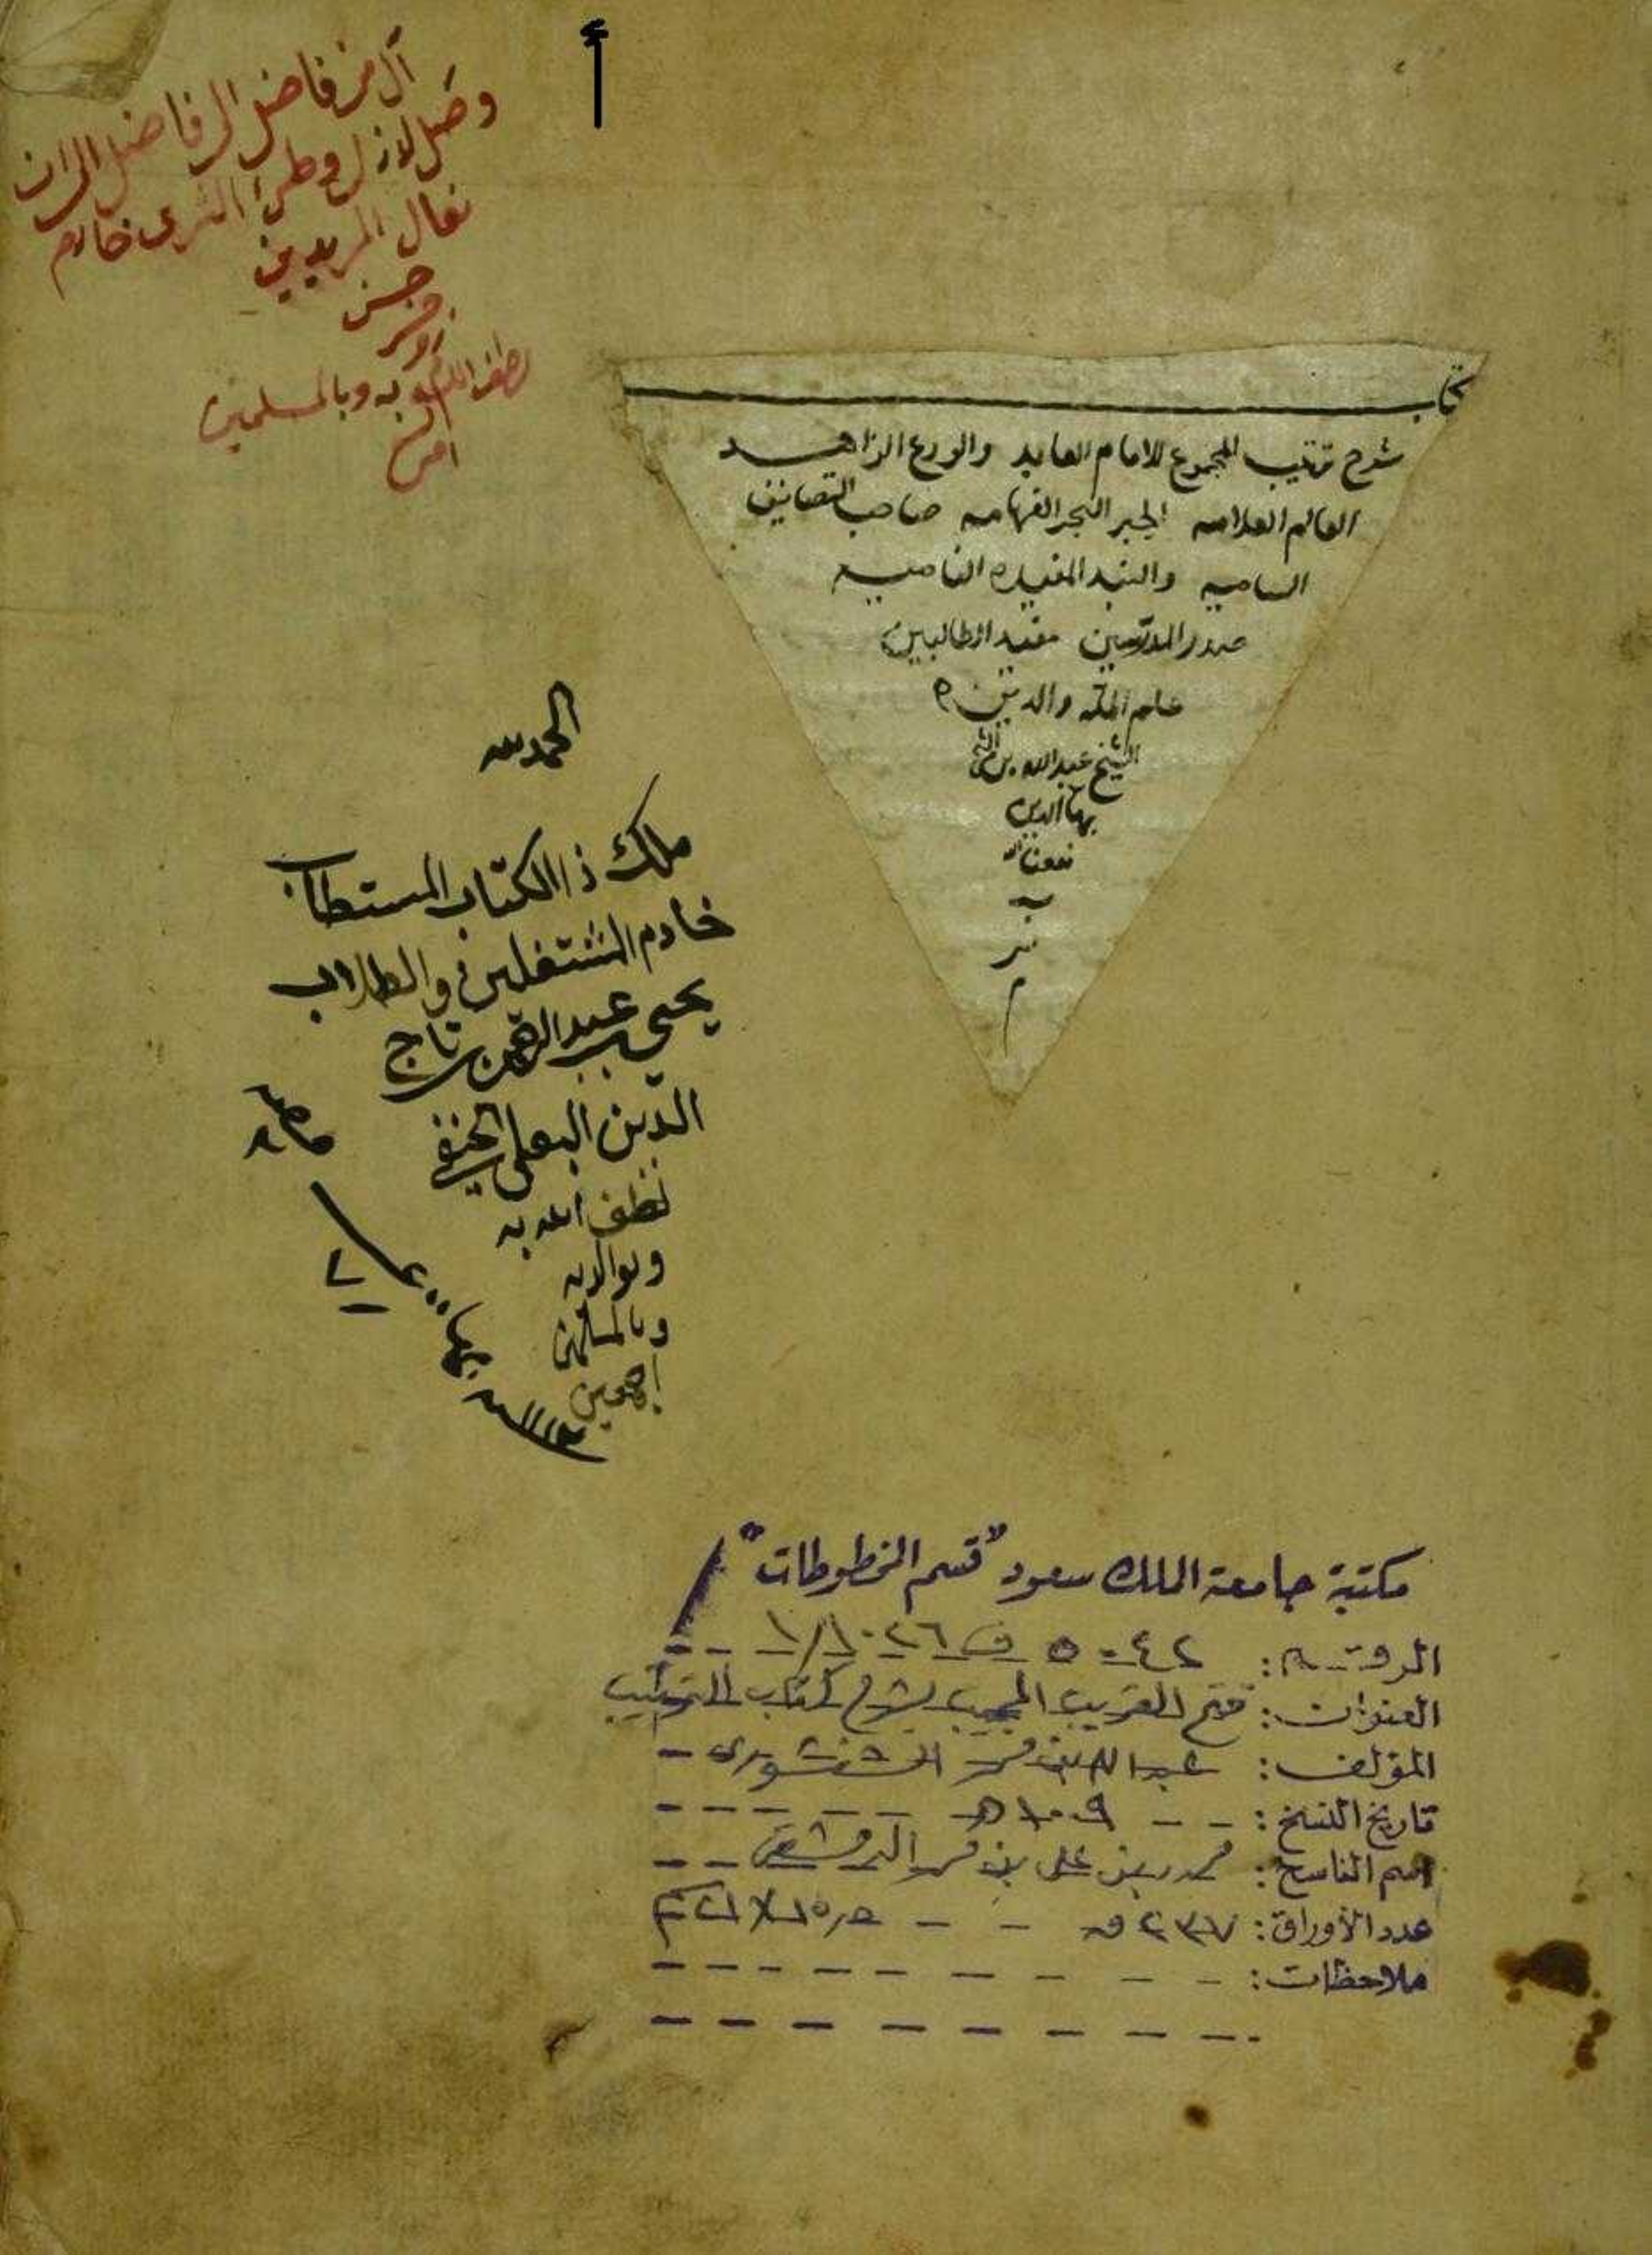 أ
آل من فاضل الى فاضل الى ان
وصل لاذل وطئ الثرى خادم
نعال المريدين
حسن
لطف الله به وبالمسلمين
امين
كتاب
شرح ترتيب المجموع للامام العابد والورع الزاهد
العالم العلامه الحبر البحر الفهامه صاحب التصانيف
الساميه والنبذ المفيده الناميه
صدر المدرسين مفيد الطالبين
علم الملة والدين ه
الشيخ عبد الله بن الشيخ
بهاء الدين
نفعنا الله
به
م
الحمد لله
ملك ذا الكتاب المستطاب
خادم المشتغلين والطلاب
يحيى بن عبد الرحمن بن تاج
الدين البعلي الحنفي
لطف الله به
وبوالديه
وبالمسلمين
اجمعين
مكتبة جامعة الملك سعود "قسم المخطوطات"
الرقم: ٥٠٤٢ ف ١/١٠٢٦
العنوان: فتح القريب المجيب بشرح كتاب الترتيب
المؤلف: عبد الله بن محمد الشنشوري
تاريخ النسخ: ١٠٠٩ هـ
اسم الناسخ: محمد بن علي بن محمد الدمشقي
عدد الأوراق: ٢٣٧ ق
ملاحظات: